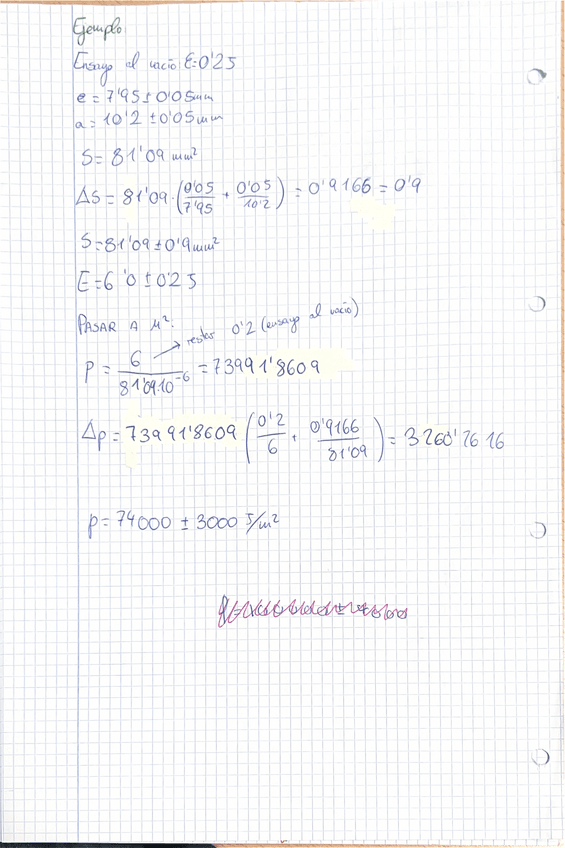 Ejemplo
Ensayo al vacío E=0'25
e = 7'95 ± 0'05 mm
a = 10'2 ± 0'05 mm
S = 81'09 mm²
ΔS = 81'09 · (0'05/7'95 + 0'05/10'2) = 0'9166 = 0'9
S = 81'09 ± 0'9 mm²
E = 6'0 ± 0'25
PASAR A M²:
restar 0'2 (ensayo al vacío)
p = 6/81'09·10⁻⁶ = 73991'8609
Δp = 73991'8609 (0'2/6 + 0'9166/81'09) = 3260'7616
p = 74000 ± 3000 J/m²